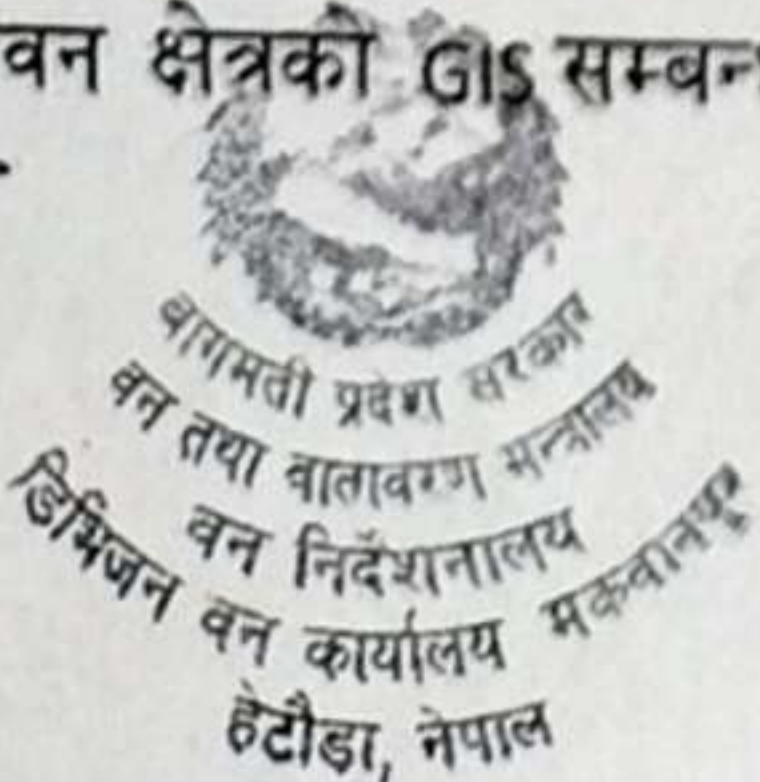 वन क्षेत्रको GIS सम्बन्ध
बागमती प्रदेश सरकार
वन तथा वातावरण मन्त्रालय
वन निर्देशनालय
डिभिजन वन कार्यालय मकवानपुर
हेटौंडा, नेपाल